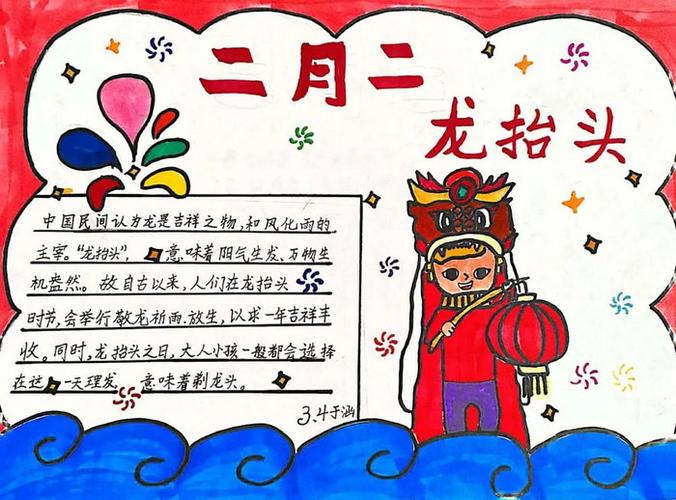 二月二
龙抬头
中国民间认为龙是吉祥之物,和风化雨的
主宰。"龙抬头",意味着阳气生发,万物生
机盎然。故自古以来,人们在龙抬头
时节,会举行敬龙祈雨.放生,以求一年吉祥丰
收。同时,龙抬头之日,大人小孩一般都会选择
在这一天理发,意味着剃龙头。
3.4于涵